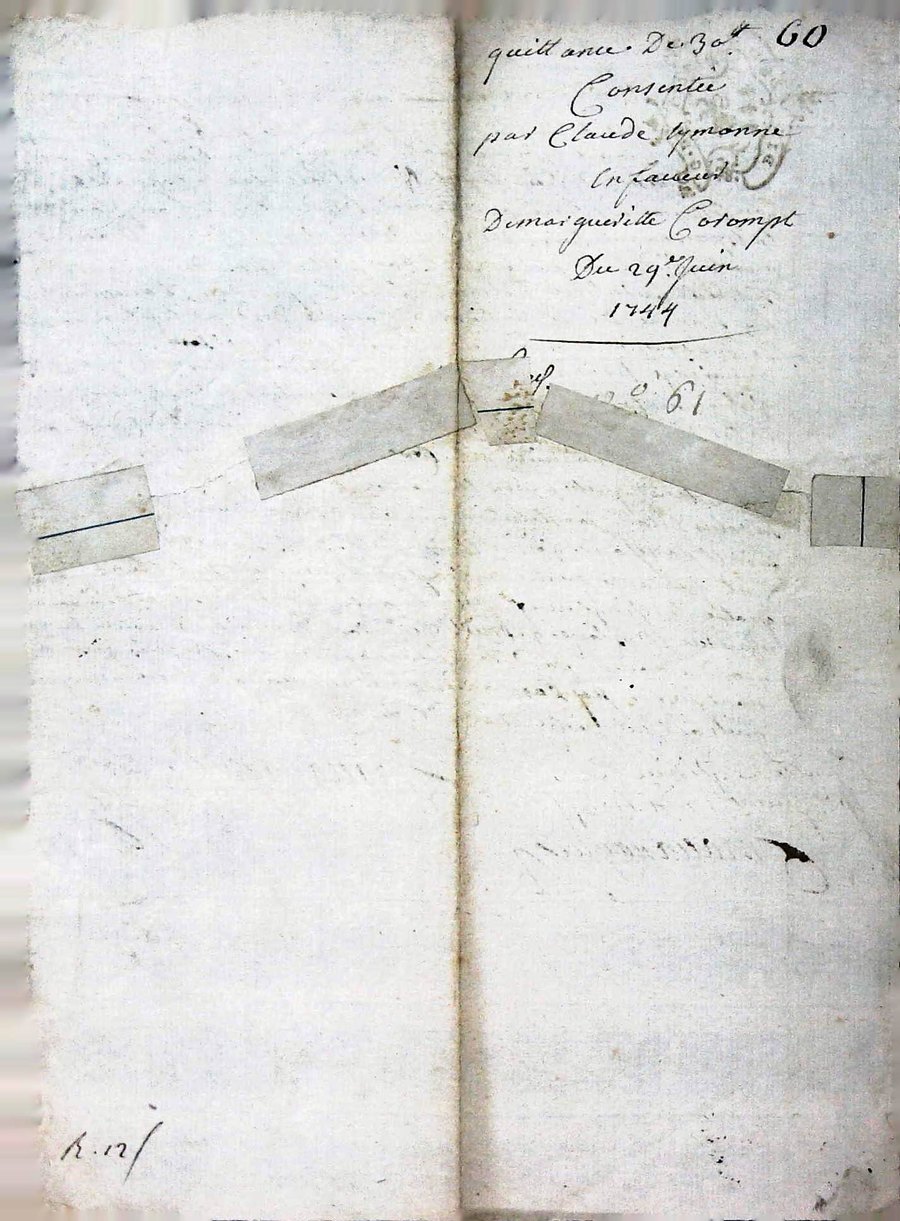 60
quittance De 30tt
Consentie
par Claude symonne
En faueur
De margueritte Corompt
Du 29e Juin
1744
no 61
R. 12 s